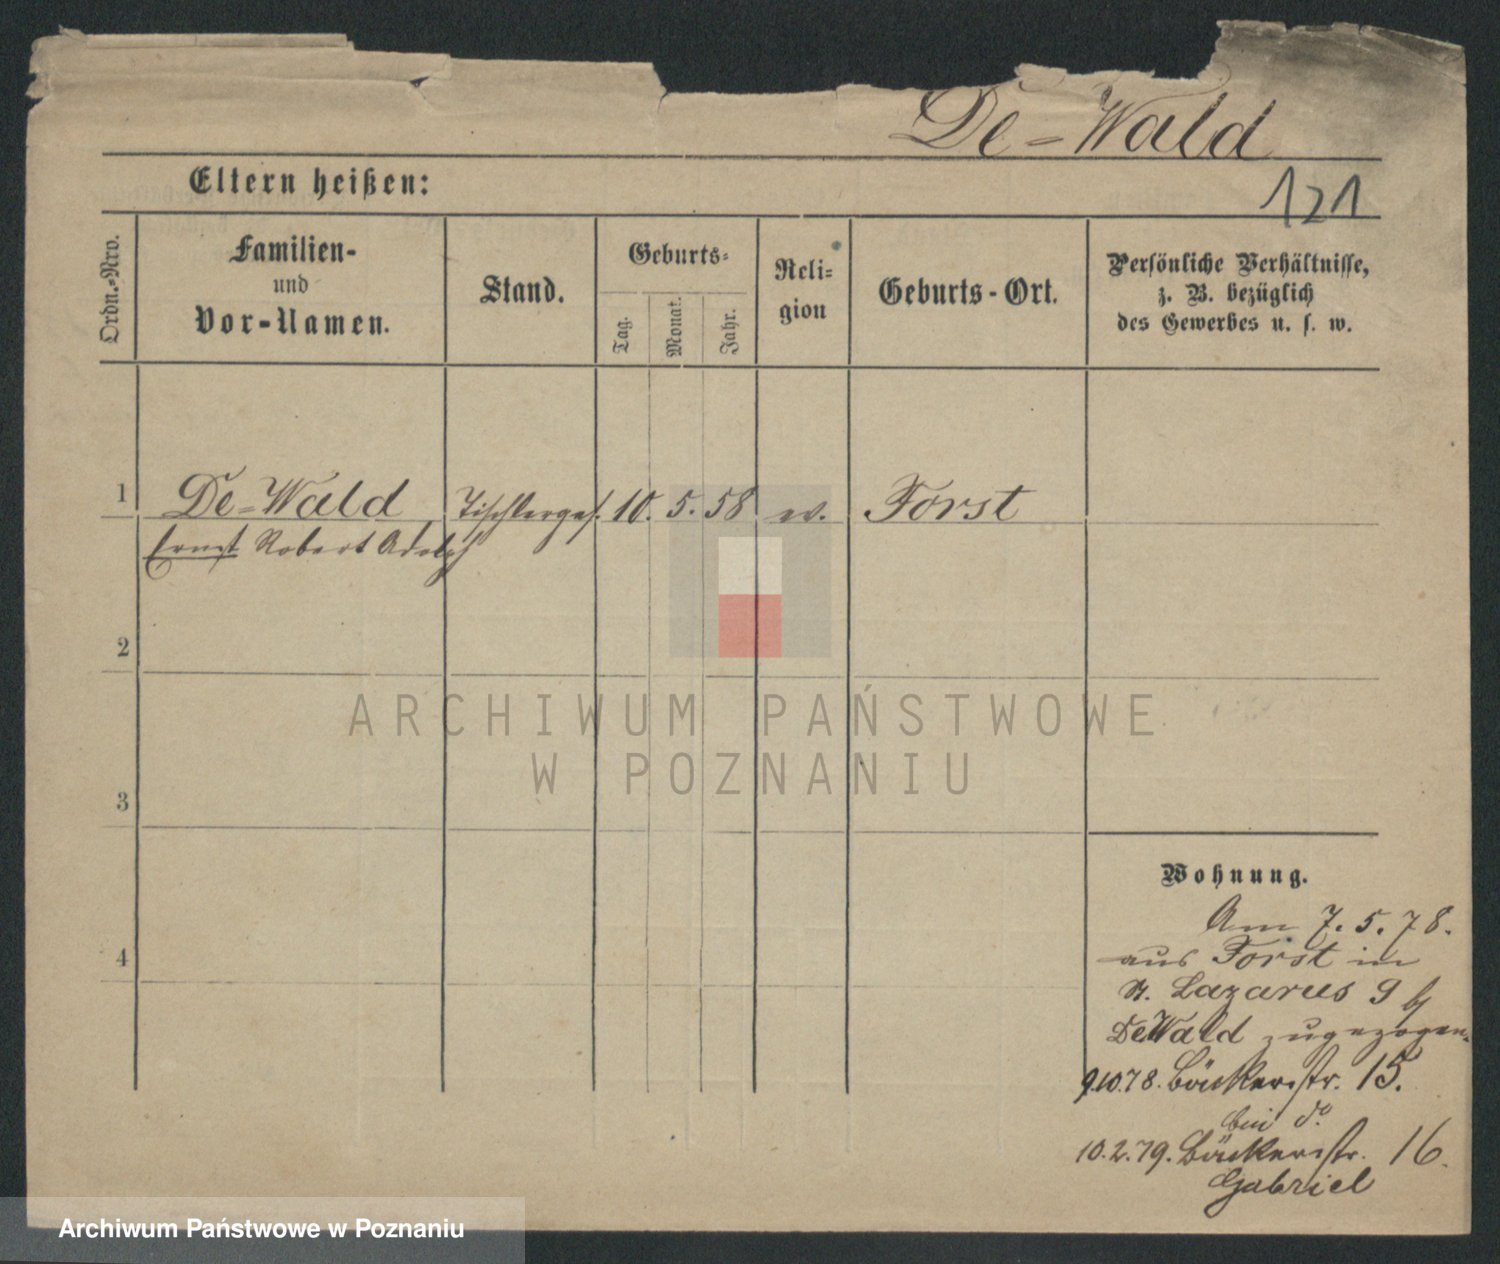 De=Wald
Eltern heißen:
121
Ordn.-Nro.
Familien-
und
Vor-Namen.
Stand.
Geburts-
Tag.
Monat.
Jahr.
Reli-
gion
Geburts-Ort.
Persönliche Verhältnisse,
z. B. bezüglich
des Gewerbes u. s. w.
1 De=Wald Tischlerges. 10. 5. 58 ev. Forst
Ernst Robert Adolph
2
3
4
Wohnung.
Am 7. 5. 78.
aus Forst in
St. Lazarus 9 bei
DeWald zugezogen.
9.10.78. Bäckerstr. 15.
bei do
10.2.79. Bäckerstr. 16.
Gabriel
ARCHIWUM PAŃSTWOWE
W POZNANIU
Archiwum Państwowe w Poznaniu